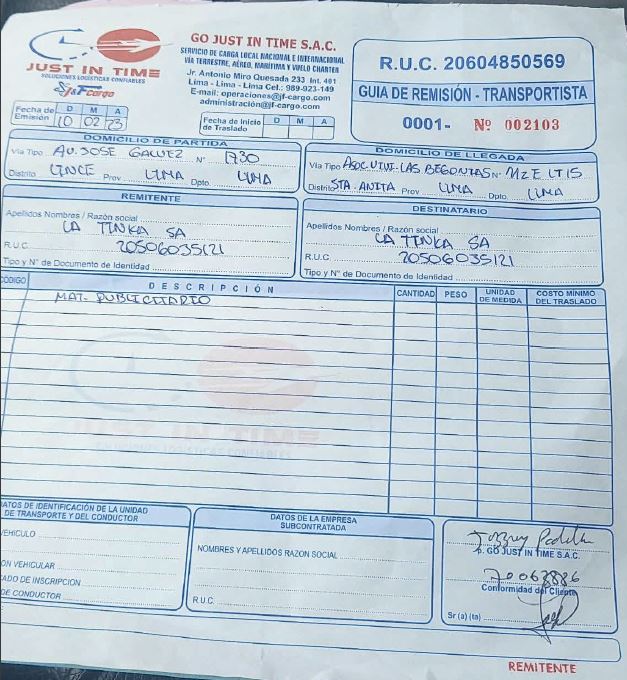 JUST IN TIME
SOLUCIONES LOGÍSTICAS CONFIABLES
J&F Cargo
GO JUST IN TIME S.A.C.
SERVICIO DE CARGA LOCAL NACIONAL E INTERNACIONAL
VÍA TERRESTRE, AÉREO, MARÍTIMA Y VUELO CHARTER
Jr. Antonio Miro Quesada 233 Int. 401
Lima - Lima - Lima Cel.: 989-923-149
E-mail: operaciones@jf-cargo.com
administración@jf-cargo.com
R.U.C. 20604850569
GUIA DE REMISIÓN - TRANSPORTISTA
0001- Nº 002103
Fecha de Emisión D M A
10 02 23
Fecha de Inicio de Traslado D M A
DOMICILIO DE PARTIDA
Vía Tipo AV. JOSE GALVEZ N° 1730
Distrito LINCE Prov LIMA Dpto. LIMA
DOMICILIO DE LLEGADA
Vía Tipo LAS BEGONIAS N° MZ E LT 15
Distrito STA ANITA Prov LIMA Dpto. LIMA
REMITENTE
Apellidos Nombres / Razón social
LA TINKA SA
R.U.C. 20506035121
Tipo y N° de Documento de Identidad
DESTINATARIO
Apellidos Nombres / Razón social
LA TINKA SA
R.U.C. 20506035121
Tipo y N° de Documento de Identidad
CÓDIGO DESCRIPCIÓN CANTIDAD PESO UNIDAD DE MEDIDA COSTO MÍNIMO DEL TRASLADO
MAT. PUBLICITARIO
JUST IN TIME
SOLUCIONES LOGÍSTICAS CONFIABLES
DATOS DE IDENTIFICACIÓN DE LA UNIDAD
DE TRANSPORTE Y DEL CONDUCTOR
VEHICULO
ON VEHICULAR
CADO DE INSCRIPCION
DE CONDUCTOR
DATOS DE LA EMPRESA
SUBCONTRATADA
NOMBRES Y APELLIDOS RAZON SOCIAL
R.U.C.
P. GO JUST IN TIME S.A.C.
70063886
Conformidad del Cliente
Sr (a) (ta)
REMITENTE